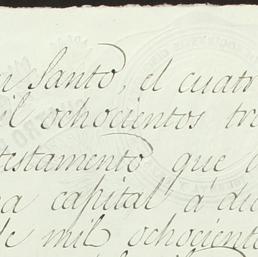 n Santo, el cuatr
il ochocientos tre
testamento que
a capital á die
de mil ochociento